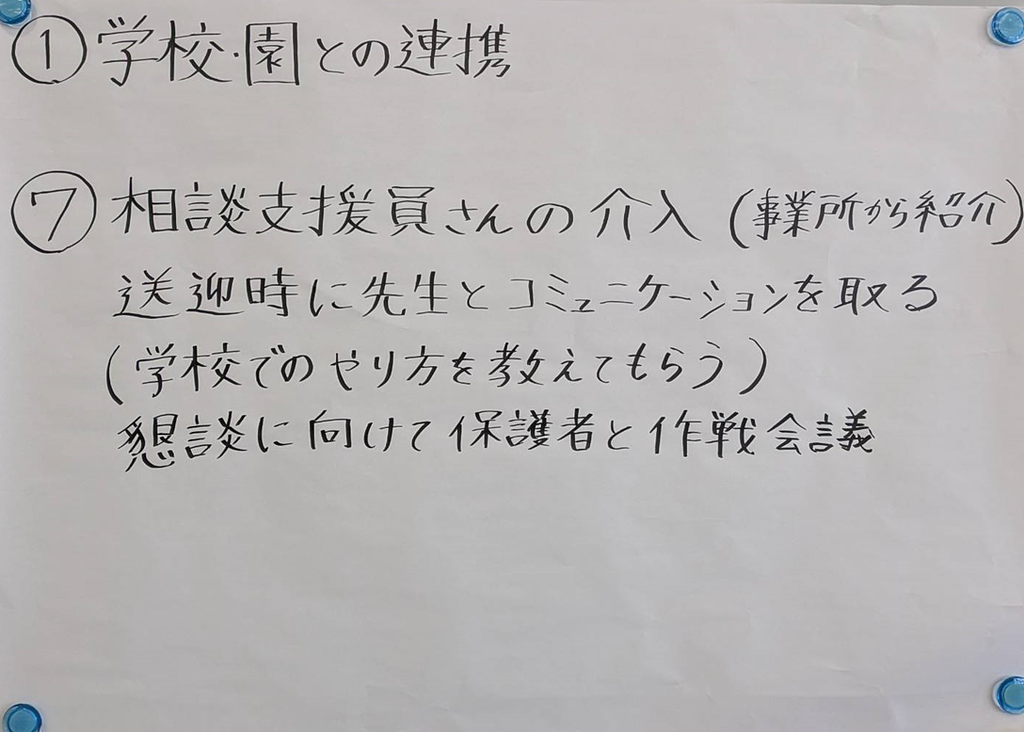 ①学校・園との連携
⑦相談支援員さんの介入(事業所から紹介)
送迎時に先生とコミュニケーションを取る
(学校でのやり方を教えてもらう)
懇談に向けて保護者と作戦会議